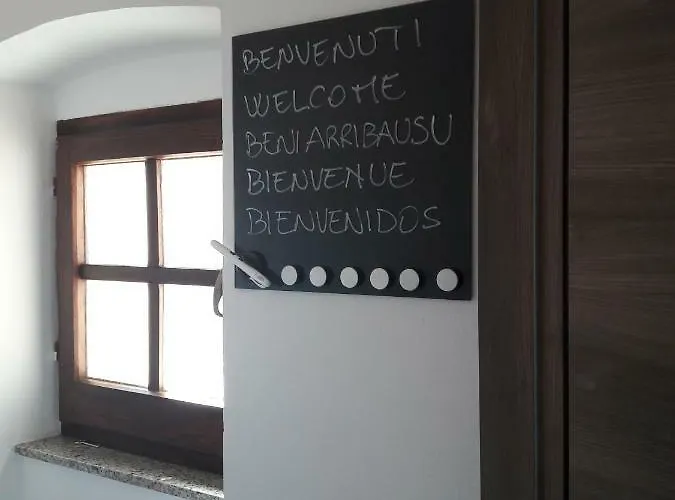 BENVENUTI
WELCOME
BENIARRIBAUSU
BIENVENUE
BIENVENIDOS